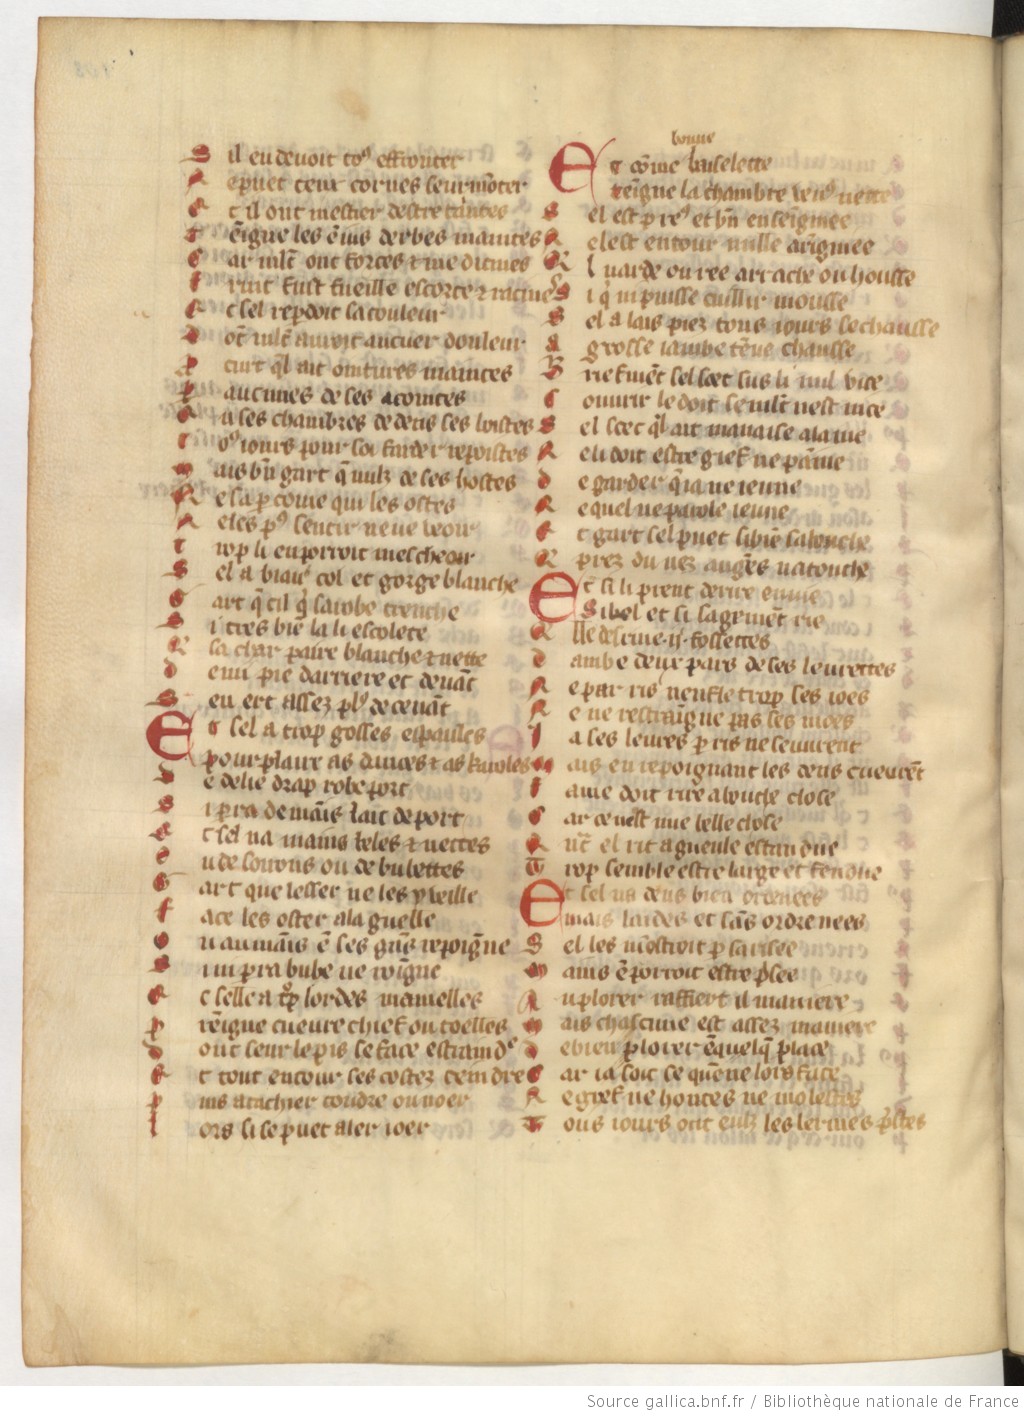 S il en devoit toꝰ effronter
R e puet ceux cornes seurmōter
E t il ont mestier destre tāintes
T ēigne les ē iiis derbes maintes
C ar mlt̄ ont forces ⁊ medicines
F ruit fust fueille escorce ⁊ racine
E t sel reꝑdoit sa couleur
D ōt mlt̄ auroit au cuer douleur
P curt q̄l ait ointures maintes
P aucunes de ses acointes
E n ses chambres dedens ses boistes
T oꝰ iours pour soi farder repoistes
M ais bn̄ gart q̄ nulz de ses hostes
R e sa ꝑcoiue qui les ostes
R e les pꝰ sentir ne ne veoir
T rop li en porroit mescheoir
S el a biau col et gorge blanche
G art q̄ cil q̄ sa robe trenche
S i tres biē la li escolete
R sa char paire blanche ⁊ nette
D emi pie darriere et deuāt
S eu ert assez plꝰ deceuāt
Et sel a trop gosses espaules
pour plaire as dances ⁊ as karoles
D e delie drap robe port
S i ꝑra de mains lait deport
E t sel na mains beles ⁊ nettes
O u de sorons ou de bubettes
G art que lesser ne les y veille
F ace les oster a la guelle
O u au mains ē ses gās repoigne
S i ni ꝑra bube ne roigne
E t selle a trop lordes mamelles
P rēigne cueurechief ou toelles
D ont seur le pis se face estraindꝰ
E t tout entour ses costez ceindre
P uis atachier coudre ou noer
L ors si se puet aler ioer
bonne
Et cōme baiselette
teigne la chambre venꝰ nette
S el est preꝰ et bn̄ enseignee
R e lest entour nulle arignee
R l narde ou ree arrache ou housse
S i q̄ ni puisse cuillir mousse
S el a lais piez tous iours se chausse
A grosse iambe tēue chausse
B riefment sel scet sus li nul vice
C ouurir le doit se mlt̄ nest nice
S el scet q̄l ait mauaise alaine
R e li doit estre grief ne paine
D e garder q̄ ia ne ieune
R e quel ne parole ieune
E t gart sel puet si biē sa bouche
R prez du nez aus gēs na touche
Et si li prent de rire enuie
Si bel et si sagement rie
R lle descriue .ij. fossettes
D ambe deux pars de ses leurettes
R e par ris nenfle trop ses ioes
R e ne restraigne pas ses moes
I a ses leures ꝑ ris ne seuurent
M ais en repoignant les dens cueurēt
F ame doit rire a bouche close
C ar ce nest mie belle close
Q nt̄ el rit a gueule estandue
T rop semble estre large et fendue
Et sel na dens bien ordenees
mais lardes et sās ordre nees
S el les mostroit ꝑ sa risee
M ains ē porroit estre ꝑsee
A u plorer raffiert il maniere
M ais chascune est assez maniere
D e bien plorer ē quelq̄ place
C ar ia soit ce quē ne lors face
R e grief ne hontes ne molestes
T ous iours ont eulz les lermes ꝑstes